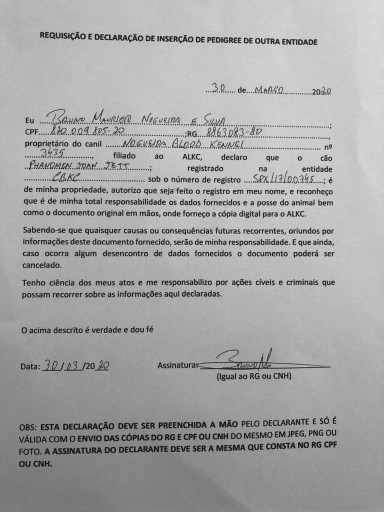 REQUISIÇÃO E DECLARAÇÃO DE INSERÇÃO DE PEDIGREE DE OUTRA ENTIDADE
30 de MARÇO 2020
Eu BRUNO MAURICIO NOGUEIRA E SILVA;
CPF 820.009.805-20 ;RG 8863083-80,
proprietário do canil NOGUEIRA BLOOD KENNEL nº
3435, filiado ao ALKC, declaro que o cão
PHANOMEN JOAN JETT; registrado na entidade
CBKC sob o número de registro SPX/17/00745; é
de minha propriedade, autorizo que seja feito o registro em meu nome, e reconheço
que é de minha total responsabilidade os dados fornecidos e a posse do animal bem
como o documento original em mãos, onde forneço a cópia digital para o ALKC.
Sabendo-se que quaisquer causas ou consequências futuras recorrentes, oriundos por
informações deste documento fornecido, serão de minha responsabilidade. E que ainda,
caso ocorra algum desencontro de dados fornecidos o documento poderá ser
cancelado.
Tenho ciência dos meus atos e me responsabilizo por ações cíveis e criminais que
possam recorrer sobre as informações aqui declaradas.
O acima descrito é verdade e dou fé
Data: 30/03/2020 Assinatura:
(Igual ao RG ou CNH)
OBS: ESTA DECLARAÇÃO DEVE SER PREENCHIDA A MÃO PELO DECLARANTE E SÓ É
VÁLIDA COM O ENVIO DAS CÓPIAS DO RG E CPF OU CNH DO MESMO EM JPEG, PNG OU
FOTO. A ASSINATURA DO DECLARANTE DEVE SER A MESMA QUE CONSTA NO RG CPF
OU CNH.